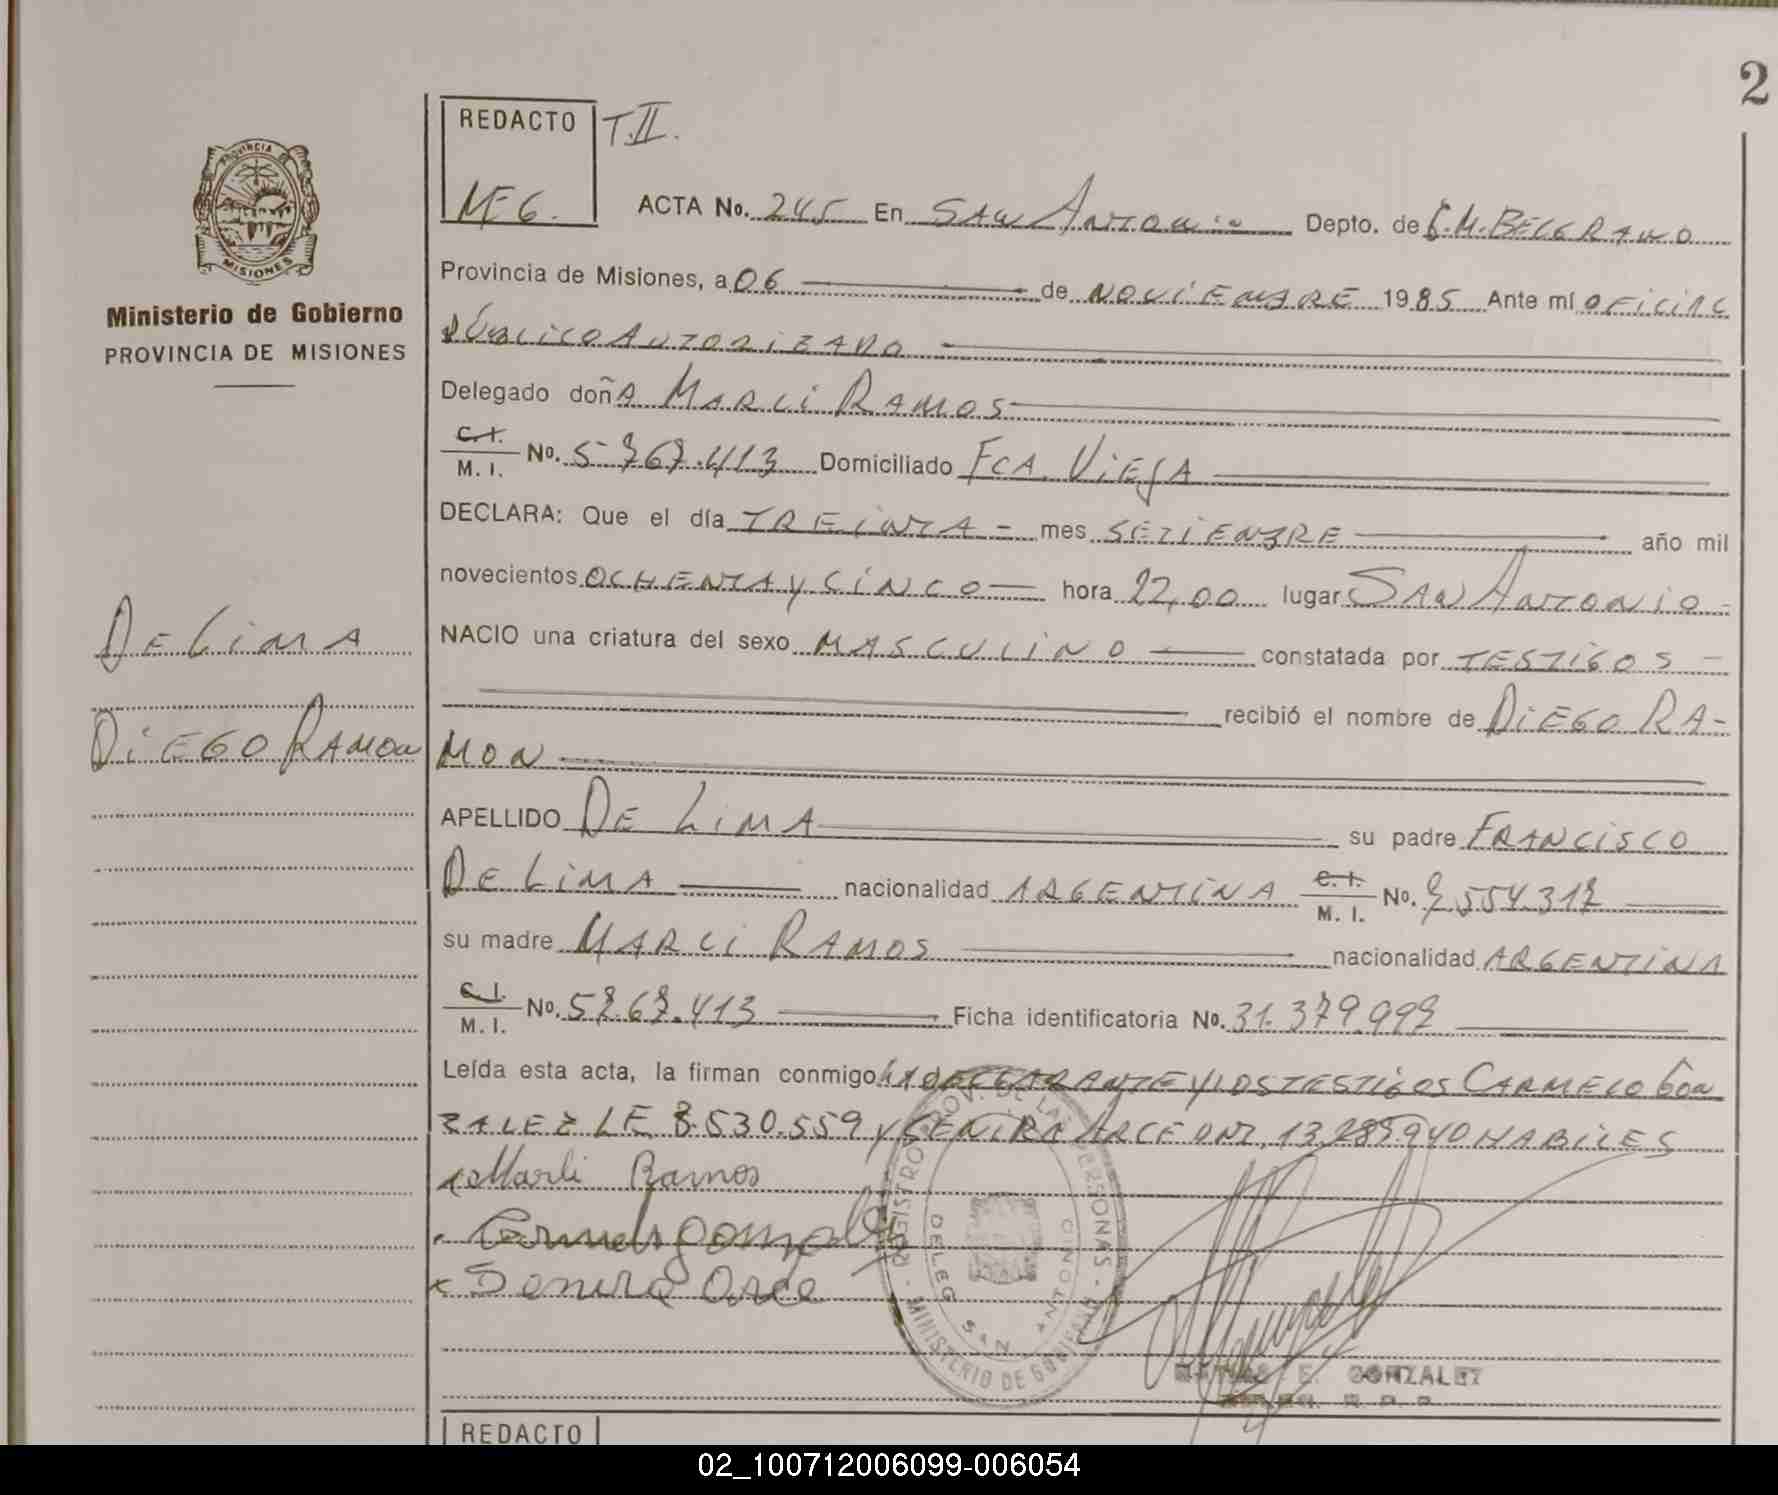 2
REDACTO
T.II.
ME6.
PROVINCIA DE
MISIONES
Ministerio de Gobierno
PROVINCIA DE MISIONES
ACTA No. 245 En SAN ANTONIO Depto. de G.M. BELGRANO
Provincia de Misiones, a 06 de NOVIEMBRE 1985 Ante mí OFICIAL
PÚBLICO AUTORIZADO
Delegado doñA MARLI RAMOS
C.I. M. I. No. 5.767.413 Domiciliado FCA. VIEJA
DECLARA: Que el día TREINTA - mes SETIEMBRE año mil
novecientos OCHENTA Y CINCO hora 22,00 lugar SAN ANTONIO -
NACIO una criatura del sexo MASCULINO constatada por TESTIGOS -
recibió el nombre de DIEGO RA-
MON
DE LIMA
DIEGO RAMON
APELLIDO DE LIMA su padre FRANCISCO
DE LIMA nacionalidad ARGENTINA C. I. M. I. No. 7.554.317
su madre MARLI RAMOS nacionalidad ARGENTINA
C. I. M. I. No. 5.767.413 Ficha identificatoria No. 31.379.997
Leída esta acta, la firman conmigo LA DECLARANTE Y LOS TESTIGOS CARMELO GON
ZALEZ LE 8.530.559 Y SENIRA ARCE DNI. 13.289.940 HABILES
x Marli Ramos
Carmelo gonzalez
x Senira Arce
REGISTRO PROV. DE LAS PERSONAS
DELEG SAN ANTONIO
MINISTERIO DE GOBIERNO
E. GONZALEZ
REDACTO
02_100712006099-006054